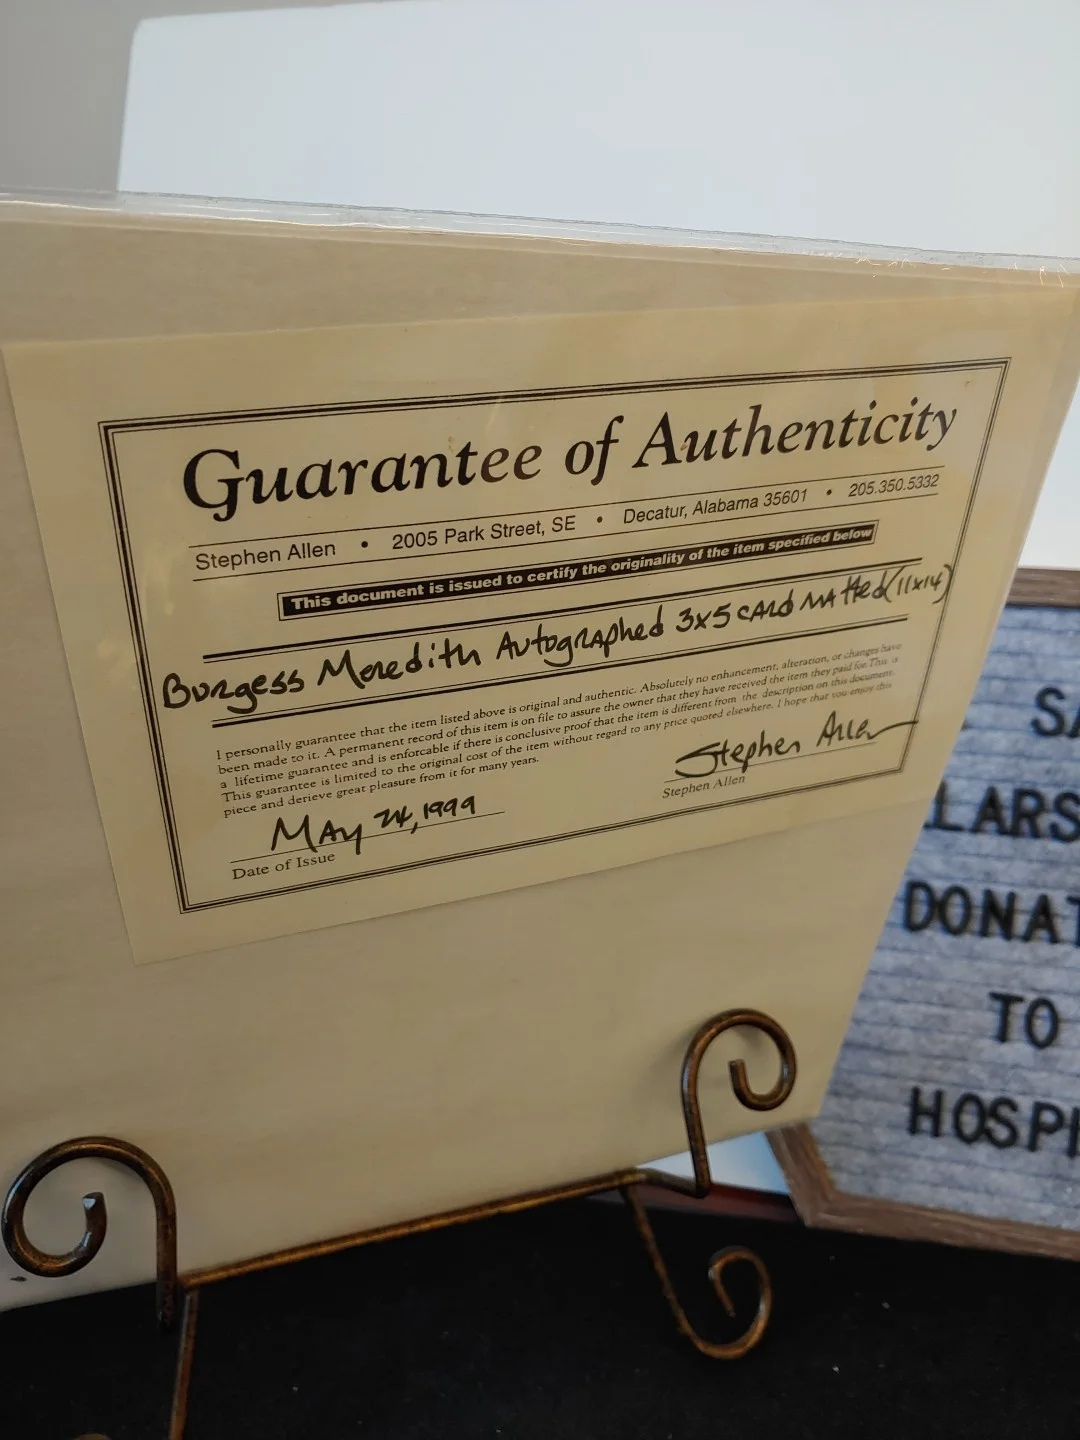 Guarantee of Authenticity
Stephen Allen • 2005 Park Street, SE • Decatur, Alabama 35601 • 205.350.5332
This document is issued to certify the originality of the item specified below
Burgess Meredith Autographed 3x5 card matted (11x14)
I personally guarantee that the item listed above is original and authentic. Absolutely no enhancement, alteration, or changes have
been made to it. A permanent record of this item is on file to assure the owner that they have received the item they paid for. This is
a lifetime guarantee and is enforcable if there is conclusive proof that the item is different from the description on this document.
This guarantee is limited to the original cost of the item without regard to any price quoted elsewhere. I hope that you enjoy this
piece and derieve great pleasure from it for many years.
Stephen Allen
Stephen Allen
May 24, 1999
Date of Issue
SA
LARS
DONAT
TO
HOSPI